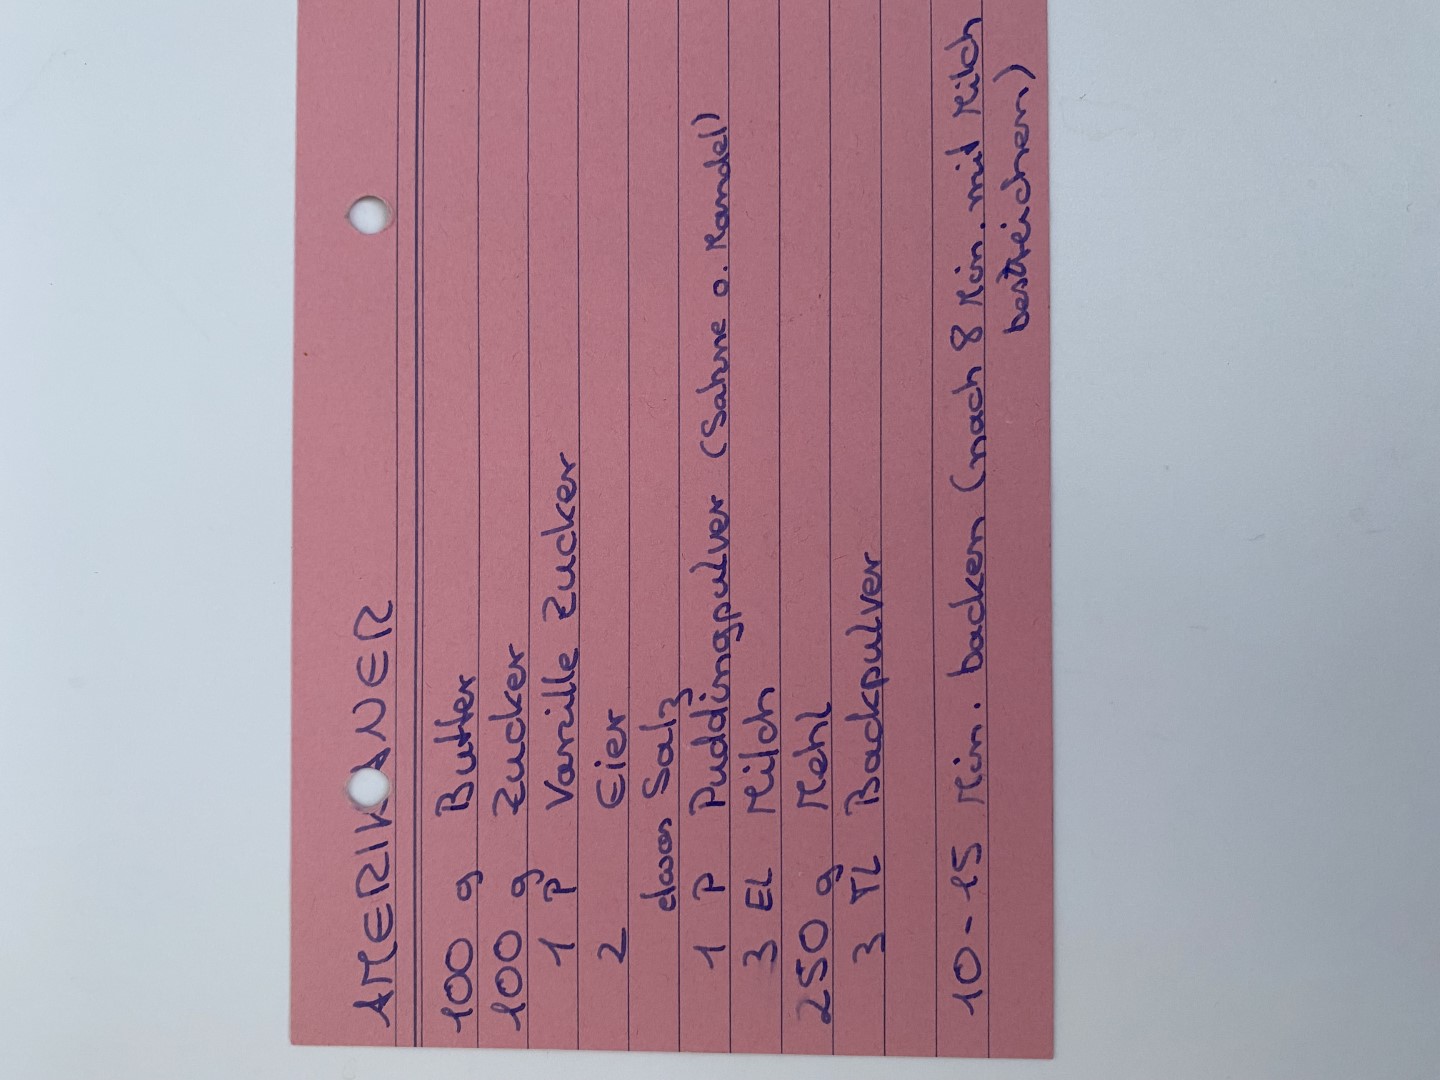 AMERIKANER
100 g Butter
100 g Zucker
1 P Vanille Zucker
2 Eier
etwas Salz
1 P Puddingpulver (Sahne o. Mandel)
3 EL Milch
250 g Mehl
3 TL Backpulver
10-15 Min. backen (nach 8 Min. mit Milch
bestreichen)